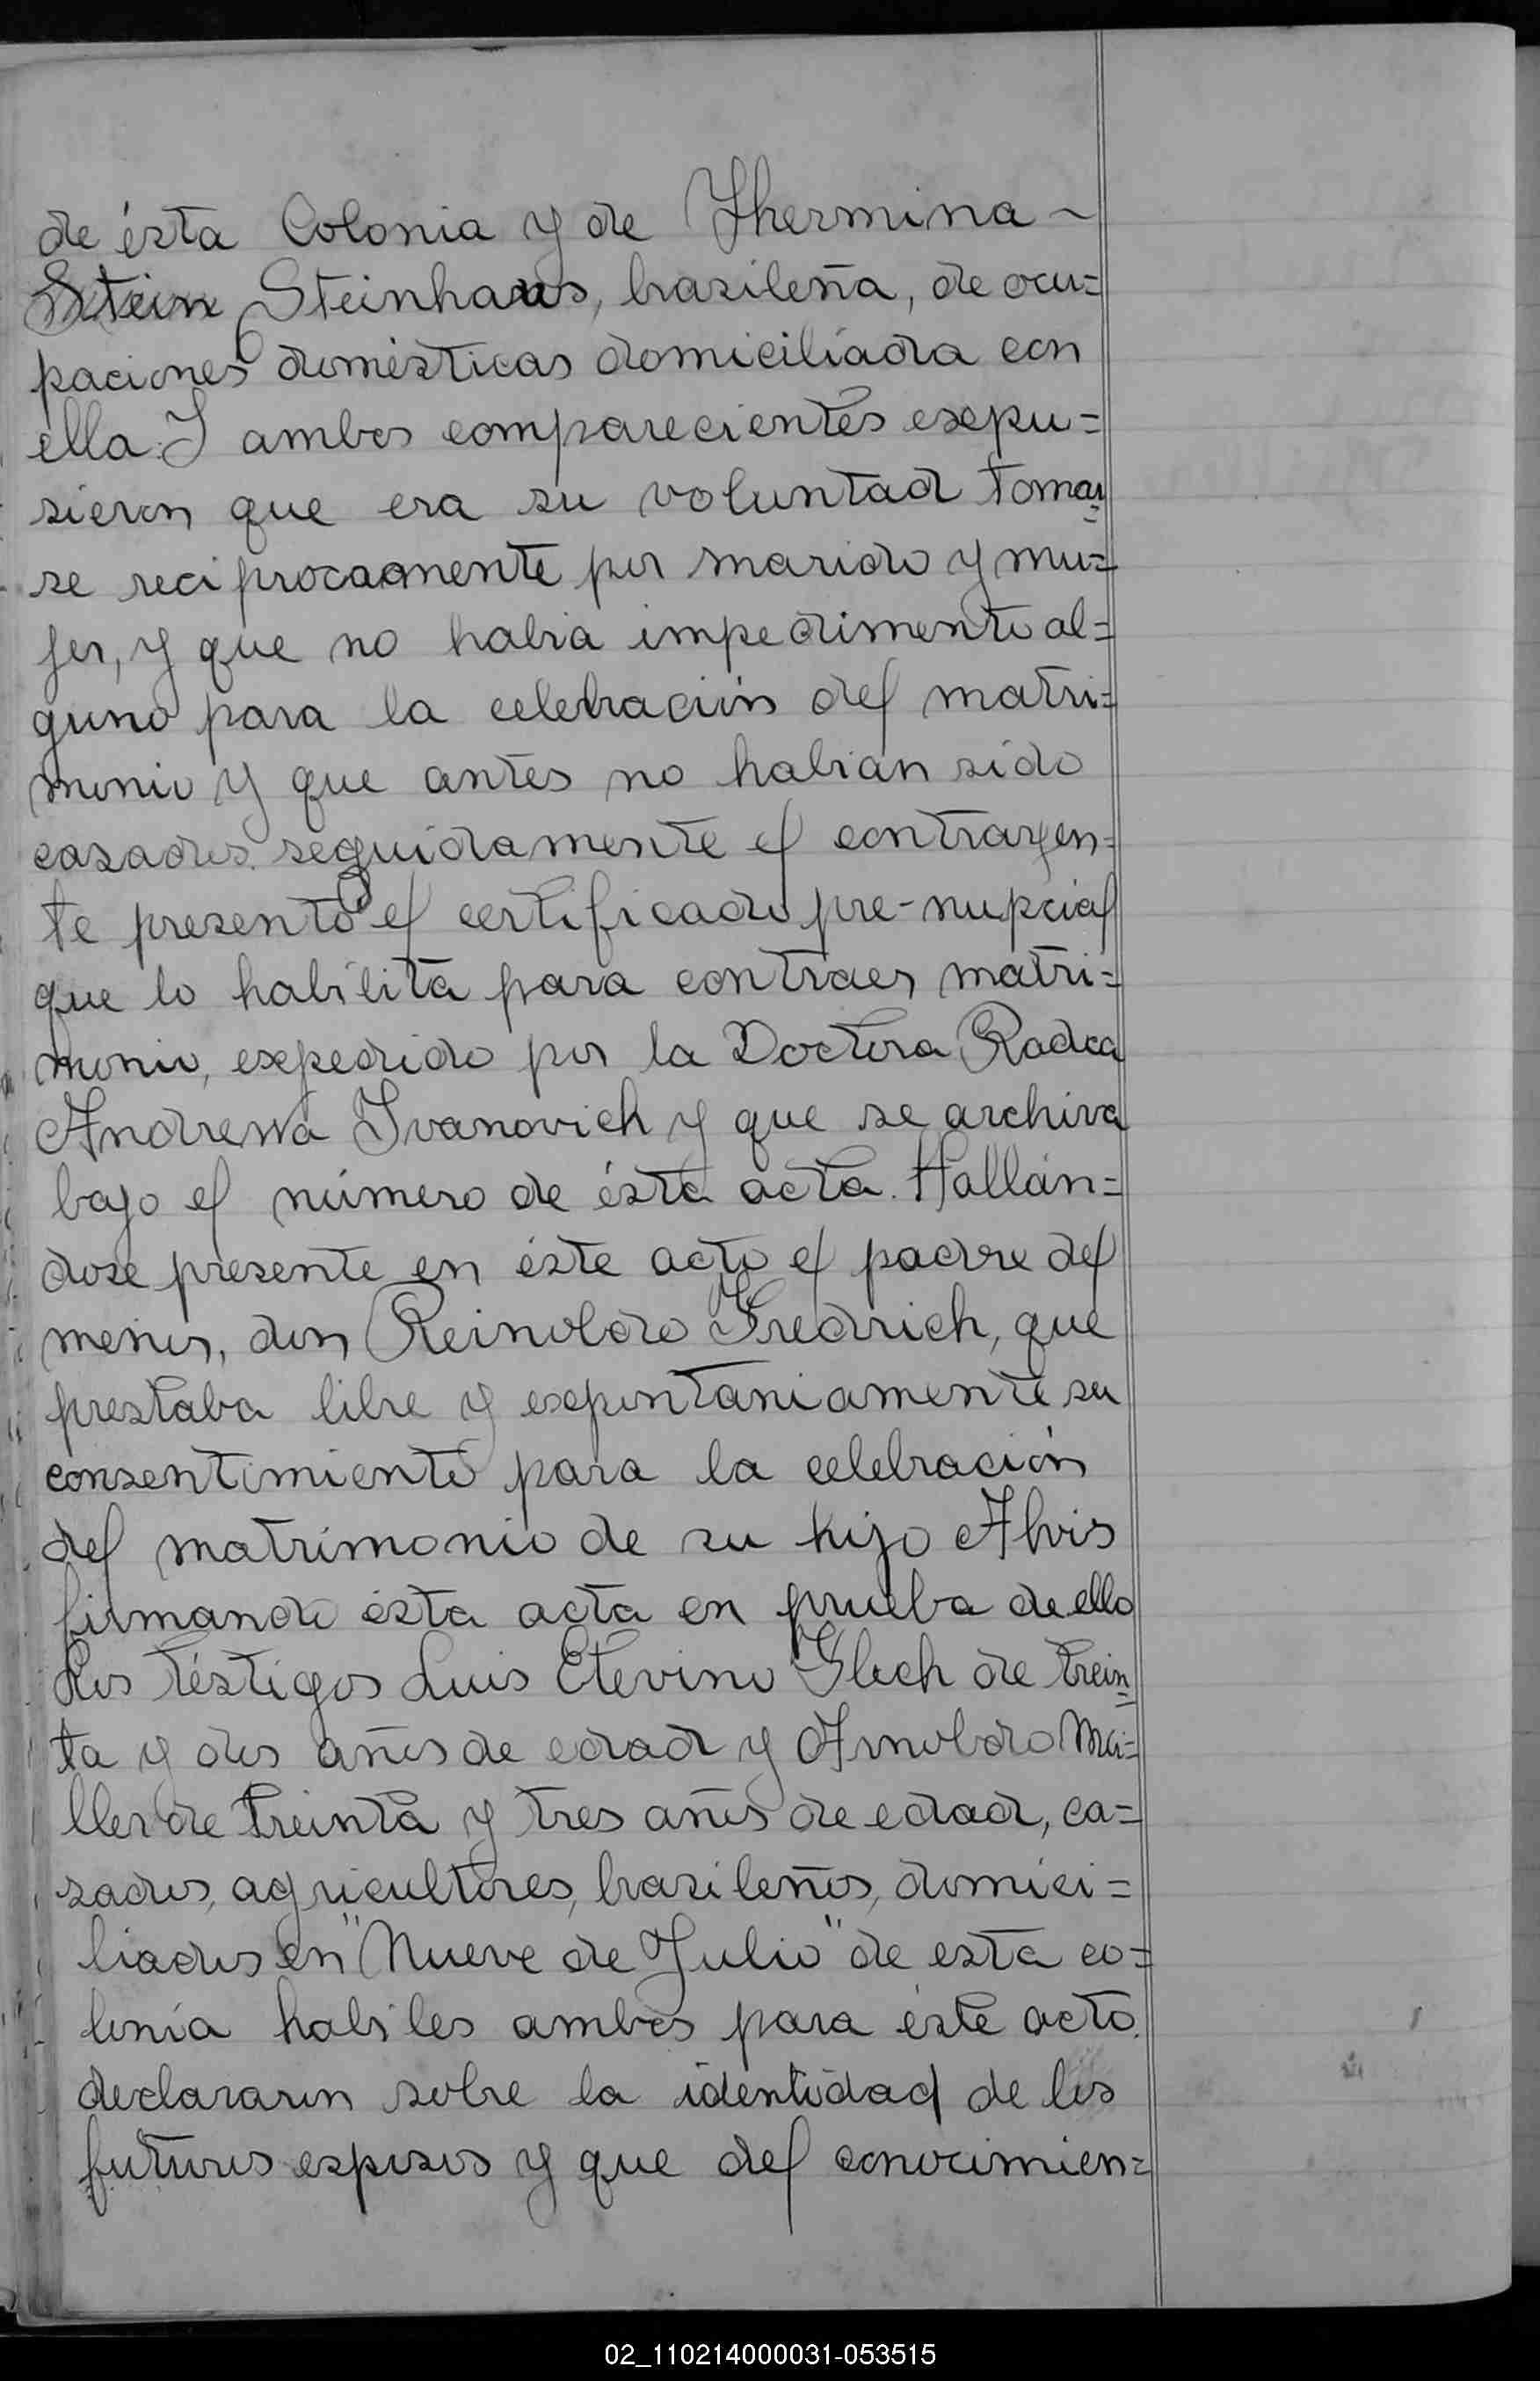 de ésta Colonia y de Thermina ~
Stein Steinhaus, brasileña, de ocu=
paciones domésticas domiciliada con
ella. Y ambos comparecientes expu=
sieron que era su voluntad tomar=
se reciprocaamente por marido y mu=
jer, y que no habia impedimento al=
guno para la celebración del matri=
monio y que antes no habian sido
casados. seguidamente el contrayen=
te presentó el certificado pre-nupcial
que lo habilita para contraer matri=
monio, expedido por la Doctora Radca
Andrewa Ivanovich y que se archiva
bajo el número de ésta acta. Hallán=
dose presente en éste acto el padre del
menor, don Reinoldo Fredrich, que
prestaba libre y expontaniamente su
consentimiento para la celebración
del matrimonio de su hijo Alvis
firmando ésta acta en prueba de ello
Los téstigos Luis Etevino Glech de trein=
ta y dos años de edad y Arnoldo Mü=
ller de treinta y tres años de edad, ca=
sados, agricultores, brasileños, domici=
liados en "Nueve de Julio" de esta co=
lonia habiles ambos para éste acto.
declararon sobre la identidad de los
futuros esposos y que del conocimien=
02_110214000031-053515